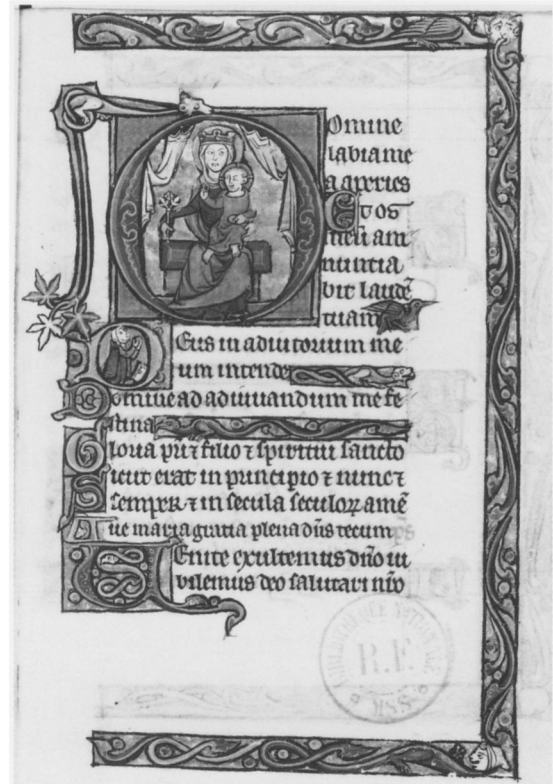 Domine
labia me
a aperies
Et os
meū an
nuntia
bit laudē
tuam
Deus in adiutorium me
um intende
Domine ad adiuuandum me fe
stina
Gloria pr̄i ⁊ filio ⁊ spiritui sancto
Sicut erat in principio ⁊ nunc ⁊
semper ⁊ in secula seculoꝝ amē
Aue maria gratia plena dn̄s tecum
Venite exultemus dn̄o iu
bilemus deo salutari nr̄o
BIBLIOTHEQUE NATIONALE
R.F.
MSS